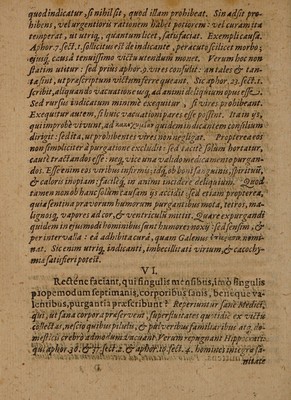 quod indicatur, si nihil sit, quod illam prohibeat. Sin adsit pro-
hibens, vel urgentioris rationem habet potiorem: vel curam ita
temperat, ut utriq, quantum licet, satisfaciat. Exempli causa.
Aphor. 7. sect. 1. sollicitus est de indicante, peracuto scilicet morbo;
eijq, causa tenuissimo victu utendum monet. Verum hoc non
statim utitur: sed prius aphor. 9. vires consulit: an tales & tan-
tæ sint, ut præscriptum victum ferre queant. Sic aphor. 23. sect. 1.
scribit, aliquando vacuatione usq, ad animi deliquium opus esse.
Sed rursus indicatum minime exequitur, si vires prohibeant.
Exequitur autem, si huic vacuationi pares esse possint. Ita ii ijs,
qui improbè vivunt, ad quidem indicantem consilium
dirigit: sed ita, ut prohibentes vires non negligat. Propterea eos
non simpliciter à purgatione excludit: sed tacitè solùm hortatur,
cautè tractandos esse: neq, vice una valido medicamento purgan-
dos. Esse enim eos viribus infirmis; idq, ob boni sanguinis, spirituũ,
& caloris inopiam: facileq, in animi incidere deliquium. Quod
tamen non ob hanc solùm causam ijs accidit: sed etiam propterea,
quia sentina pravorum humorum purgantibus mota, tetros, ma-
lignosq, vapores ad cor, & ventriculũ mittit. Quare expurgandi
quidem in ejusmodi hominibus sunt humores noxij: sed sensim, &
per intervalla: eâ adhibitâ curâ, quam Galenus nomi-
nat. Sic enim utriq, indicanti, imbecillitati virium, & cacochy-
miæ satisfieri potest.
VI.
Rectène faciant, qui singulis mensibus, imò singulis
propemodum septimanis, corporibus sanis, beneque va-
lentibus, purgantia præscribunt? Reperiuntur sanè Medici,
qui, ut sana corpora præservent, superfluitates quotidie ex victu
collectas, nescio quibus pilulis, & pulveribus familiaribus atq, do-
mesticis crebrò admodum evacuant. Verum repugnant Hippocratis
qui aphor. 36. & 37. sect. 2. & aphor. 16. sect. 4. homines integra sa-
nitate